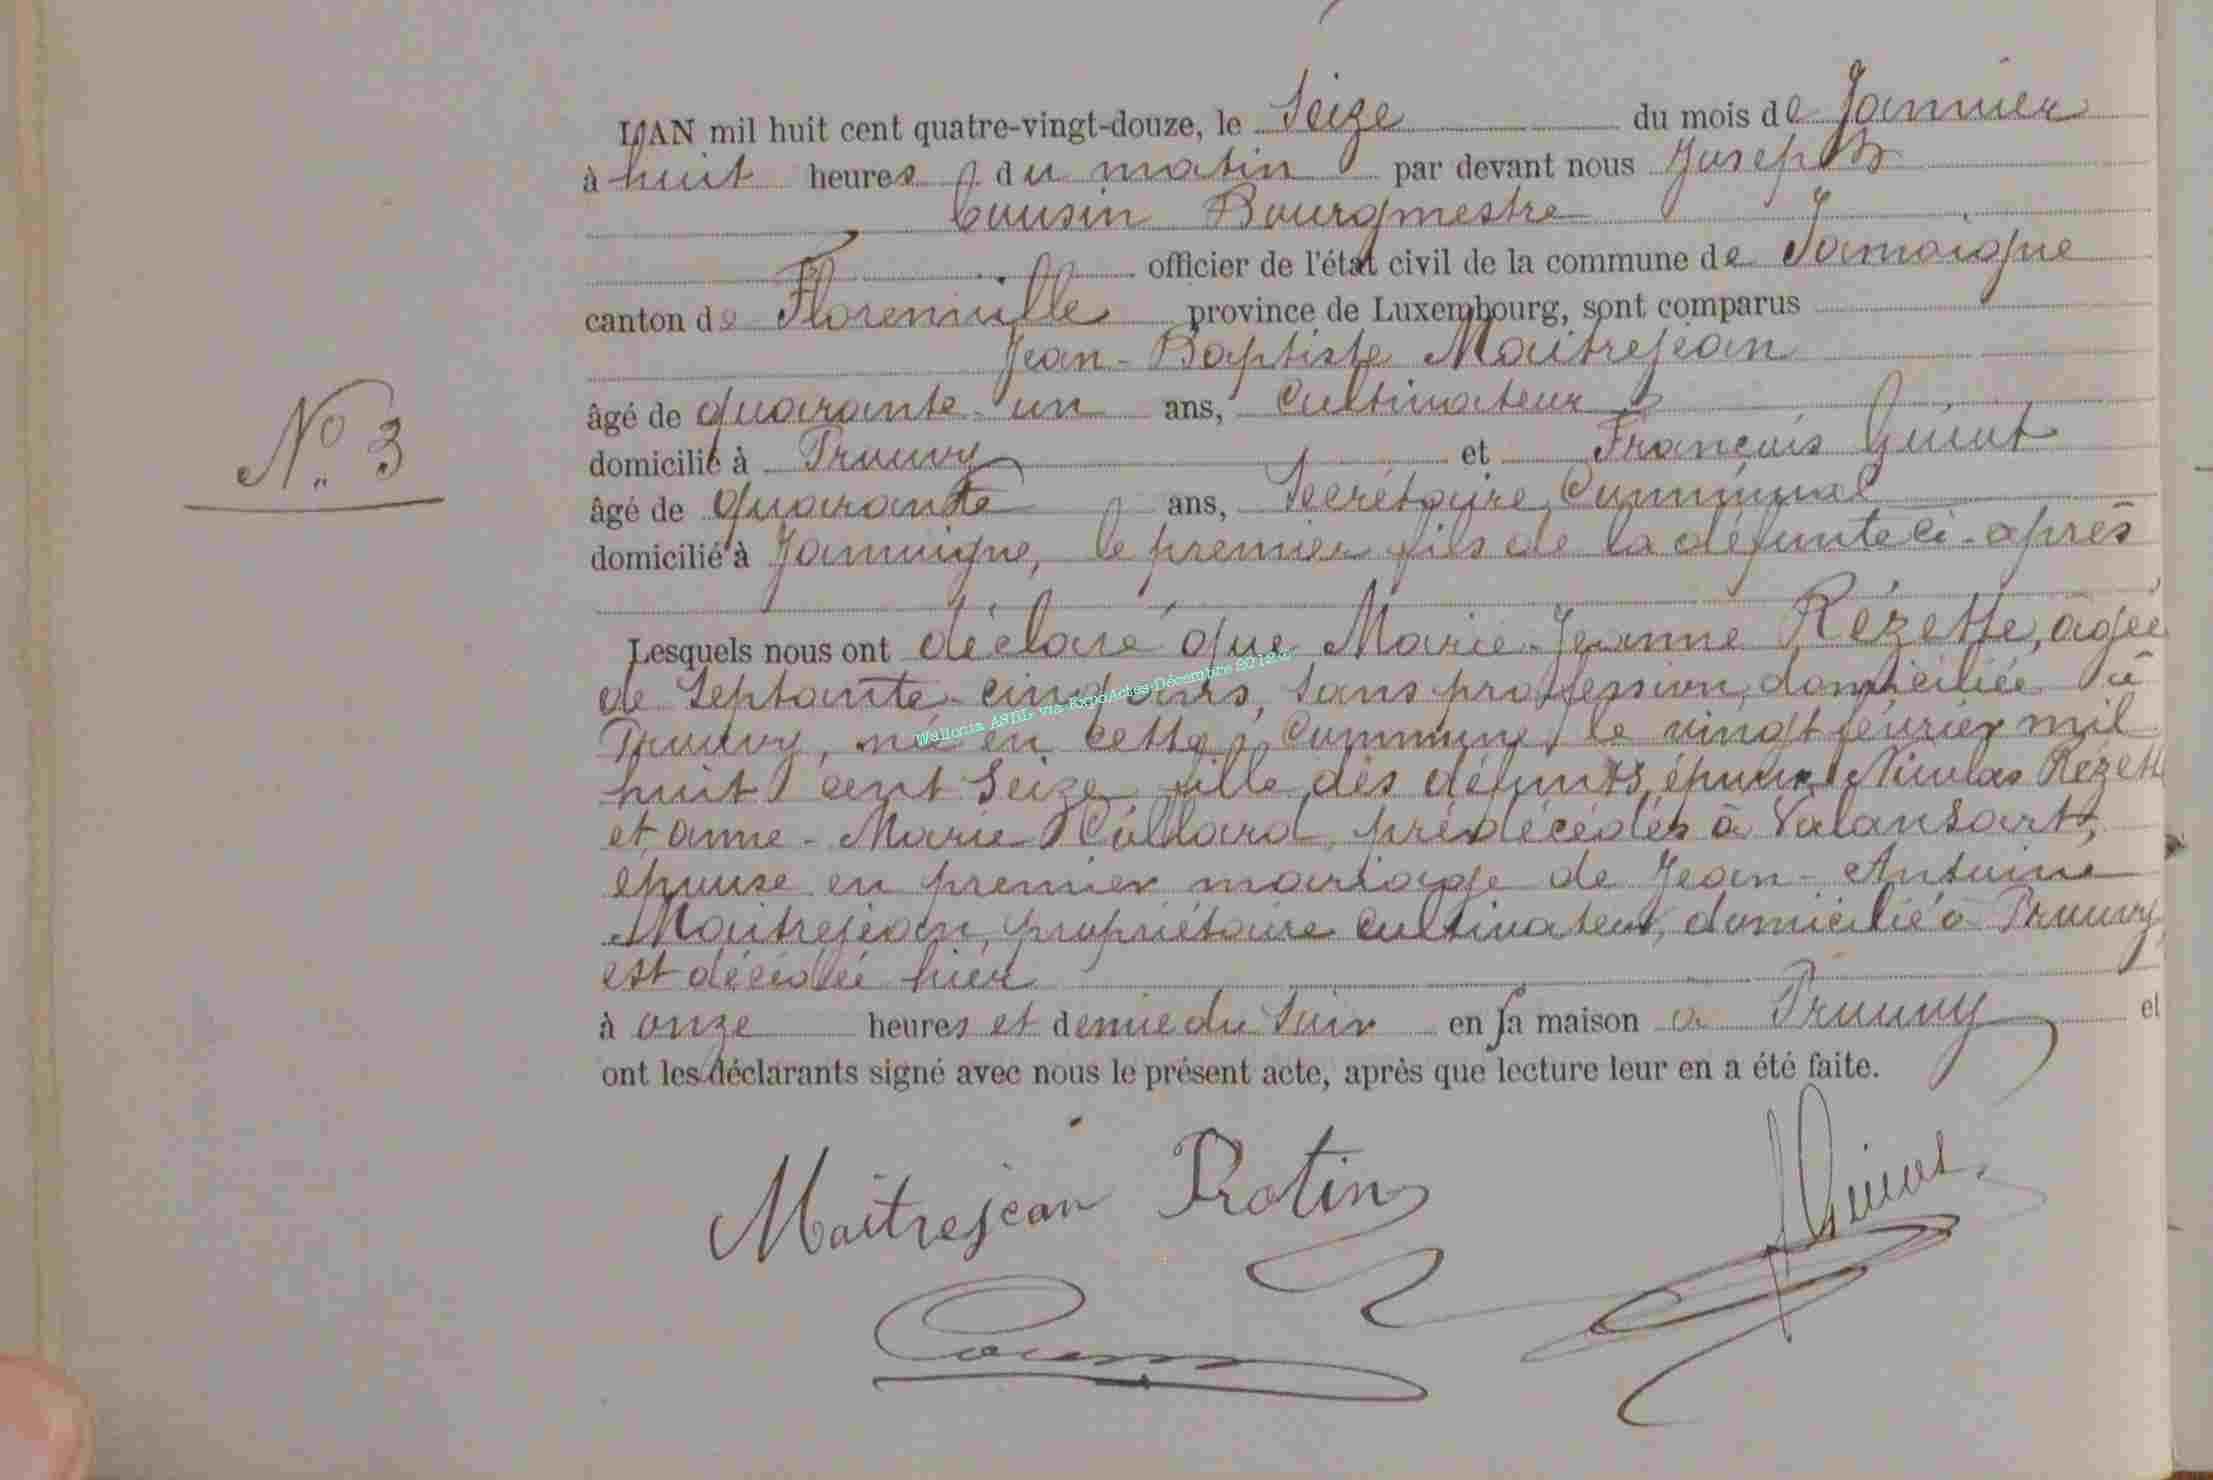 L'AN mil huit cent quatre-vingt-douze, le Seize du mois de Janvier
à huit heures du matin par devant nous Joseph
Cousin Bourgmestre
officier de l'état civil de la commune de Jamoigne
canton de Florenville province de Luxembourg, sont comparus
Jean-Baptiste Maitrejean
âgé de quarante-un ans, Cultivateur
domicilié à Prouvy et François Guiot
N° 3
âgé de quarante ans, Secrétaire Communal
domicilié à Jamoigne, le premier fils de la défunte ci-après
Lesquels nous ont déclaré que Marie-Jeanne Rézette, agée
de Septante-cinq ans, sans profession, domiciliée à
Prouvy, né en cette commune, le vingt février mil
huit cent Seize, fille des défunts époux Nicolas Rézette
et anne-Marie Collard, prédécédés à Valansart,
épouse en premier mariage de Jean-Antoine
Maitrejean, propriétaire cultivateur, domicilié à Prouvy
est décédée hier
à onze heures et demie du Soir en sa maison à Prouvy et
ont les déclarants signé avec nous le présent acte, après que lecture leur en a été faite.
Maîtrejean Protin
Guiot
Cousin
Wallonia ASBL via ExpoActes Décembre 2012